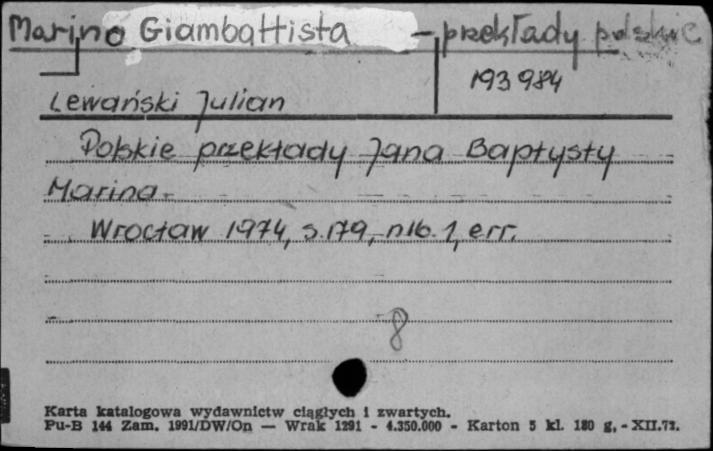 Marino Giambattista – przekłady polskie
193984
Lewański Julian
Polskie przekłady Jana Baptysty
Marina.
Wrocław 1974, s. 179, nlb. 1, err.
8
Karta katalogowa wydawnictw ciągłych i zwartych.
Pu-B 144 Zam. 1991/DW/On — Wrak 1291 - 4.350.000 - Karton 5 kl. 180 g, - XII.72.